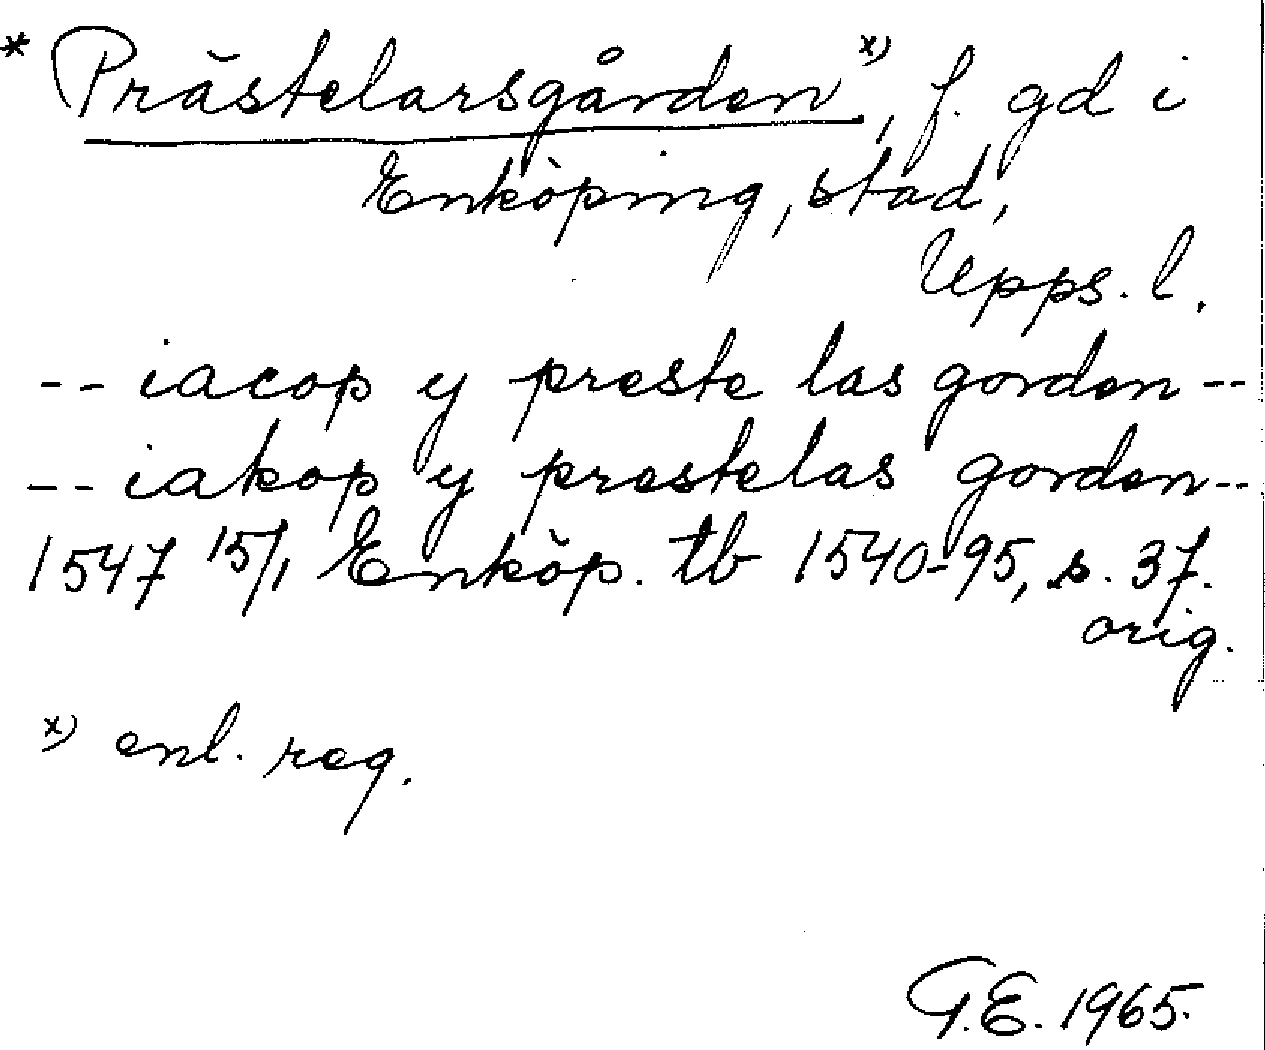 * Prästelarsgården x), f. gd i
Enköping, stad,
Upps. l.
-- iacop y preste las gorden --
-- iakop y prestelas gorden --
1547 15/1 Enköp. tb 1540-95, s. 37.
orig.
x) enl. reg.
G.E. 1965.